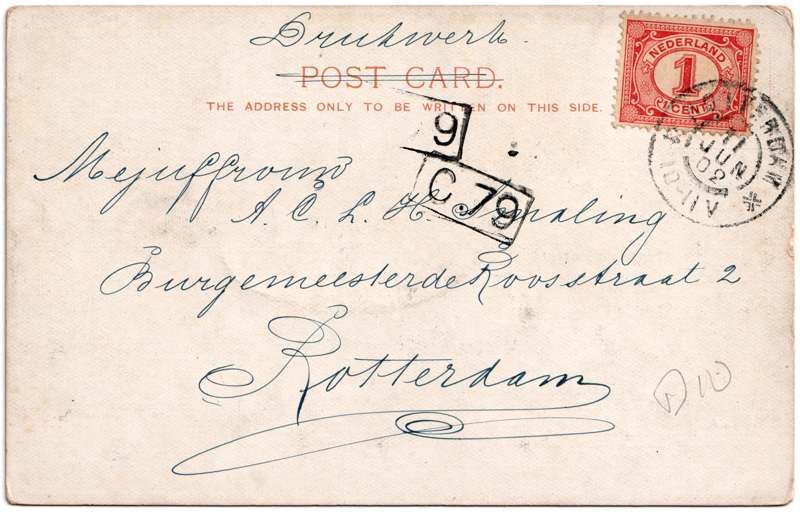 Drukwerk.
POST CARD.
THE ADDRESS ONLY TO BE WRITTEN ON THIS SIDE.
NEDERLAND
1
1 CENT
JUN
02
9
C. 79
Mejuffrouw
A. C. L. H. Smaling
Burgemeester de Roosstraat 2
Rotterdam